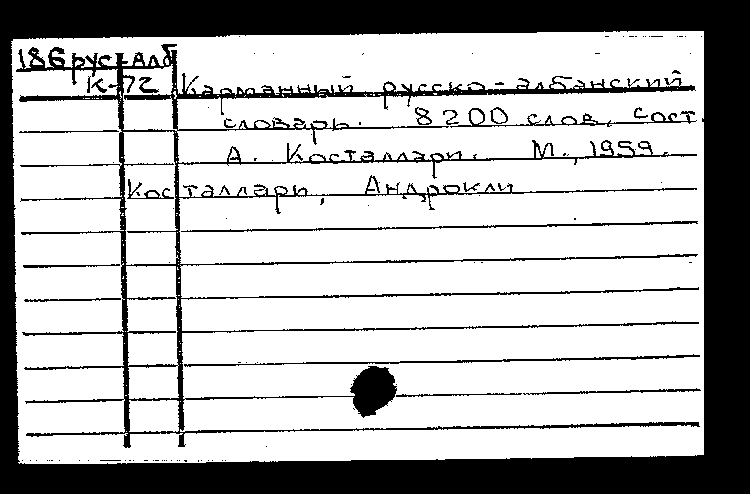 18Б рус-алб
К-72 Карманный русско-албанский
словарь. 8200 слов, сост.
А. Косталлари. М., 1959.
Косталлари, Андрокли